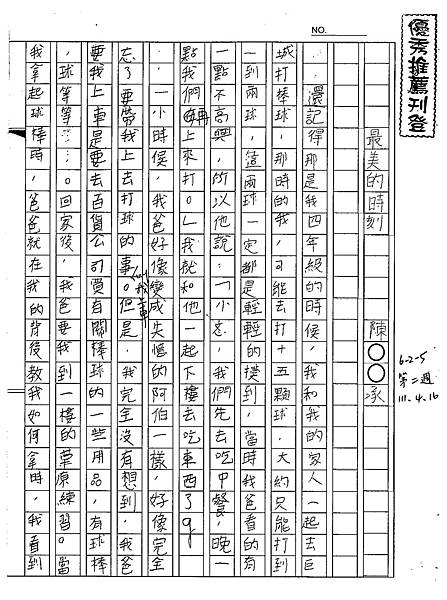 優秀推薦刊登
NO.
最美的時刻
陳○○承
6-2-5
第二週
111.4.16
還記得那是我四年級的時候,我和我的家人一起去巨
城打棒球,那時的我,可能去打十五顆球,大約只能打到
一到兩球,這兩球一定都是輕輕的撲到,當時我爸看的有
一點不高興,所以他說:「小,我們先去吃中餐,晚一
點,我們再上來打。」我就和他一起下樓去吃東西了。
一小時候,我爸好像變成失憶的阿伯一樣,好像完全
忘了要帶我上去打球的事。但是,我完全沒有想到,我爸
要我上車是要去百貨公司買有關棒球的一些用品,有球棒
,球等等……。回家後,我爸要我到一樓的草原練習。當
我拿起球棒時,爸爸就在我的背後教我如何拿時,我看到